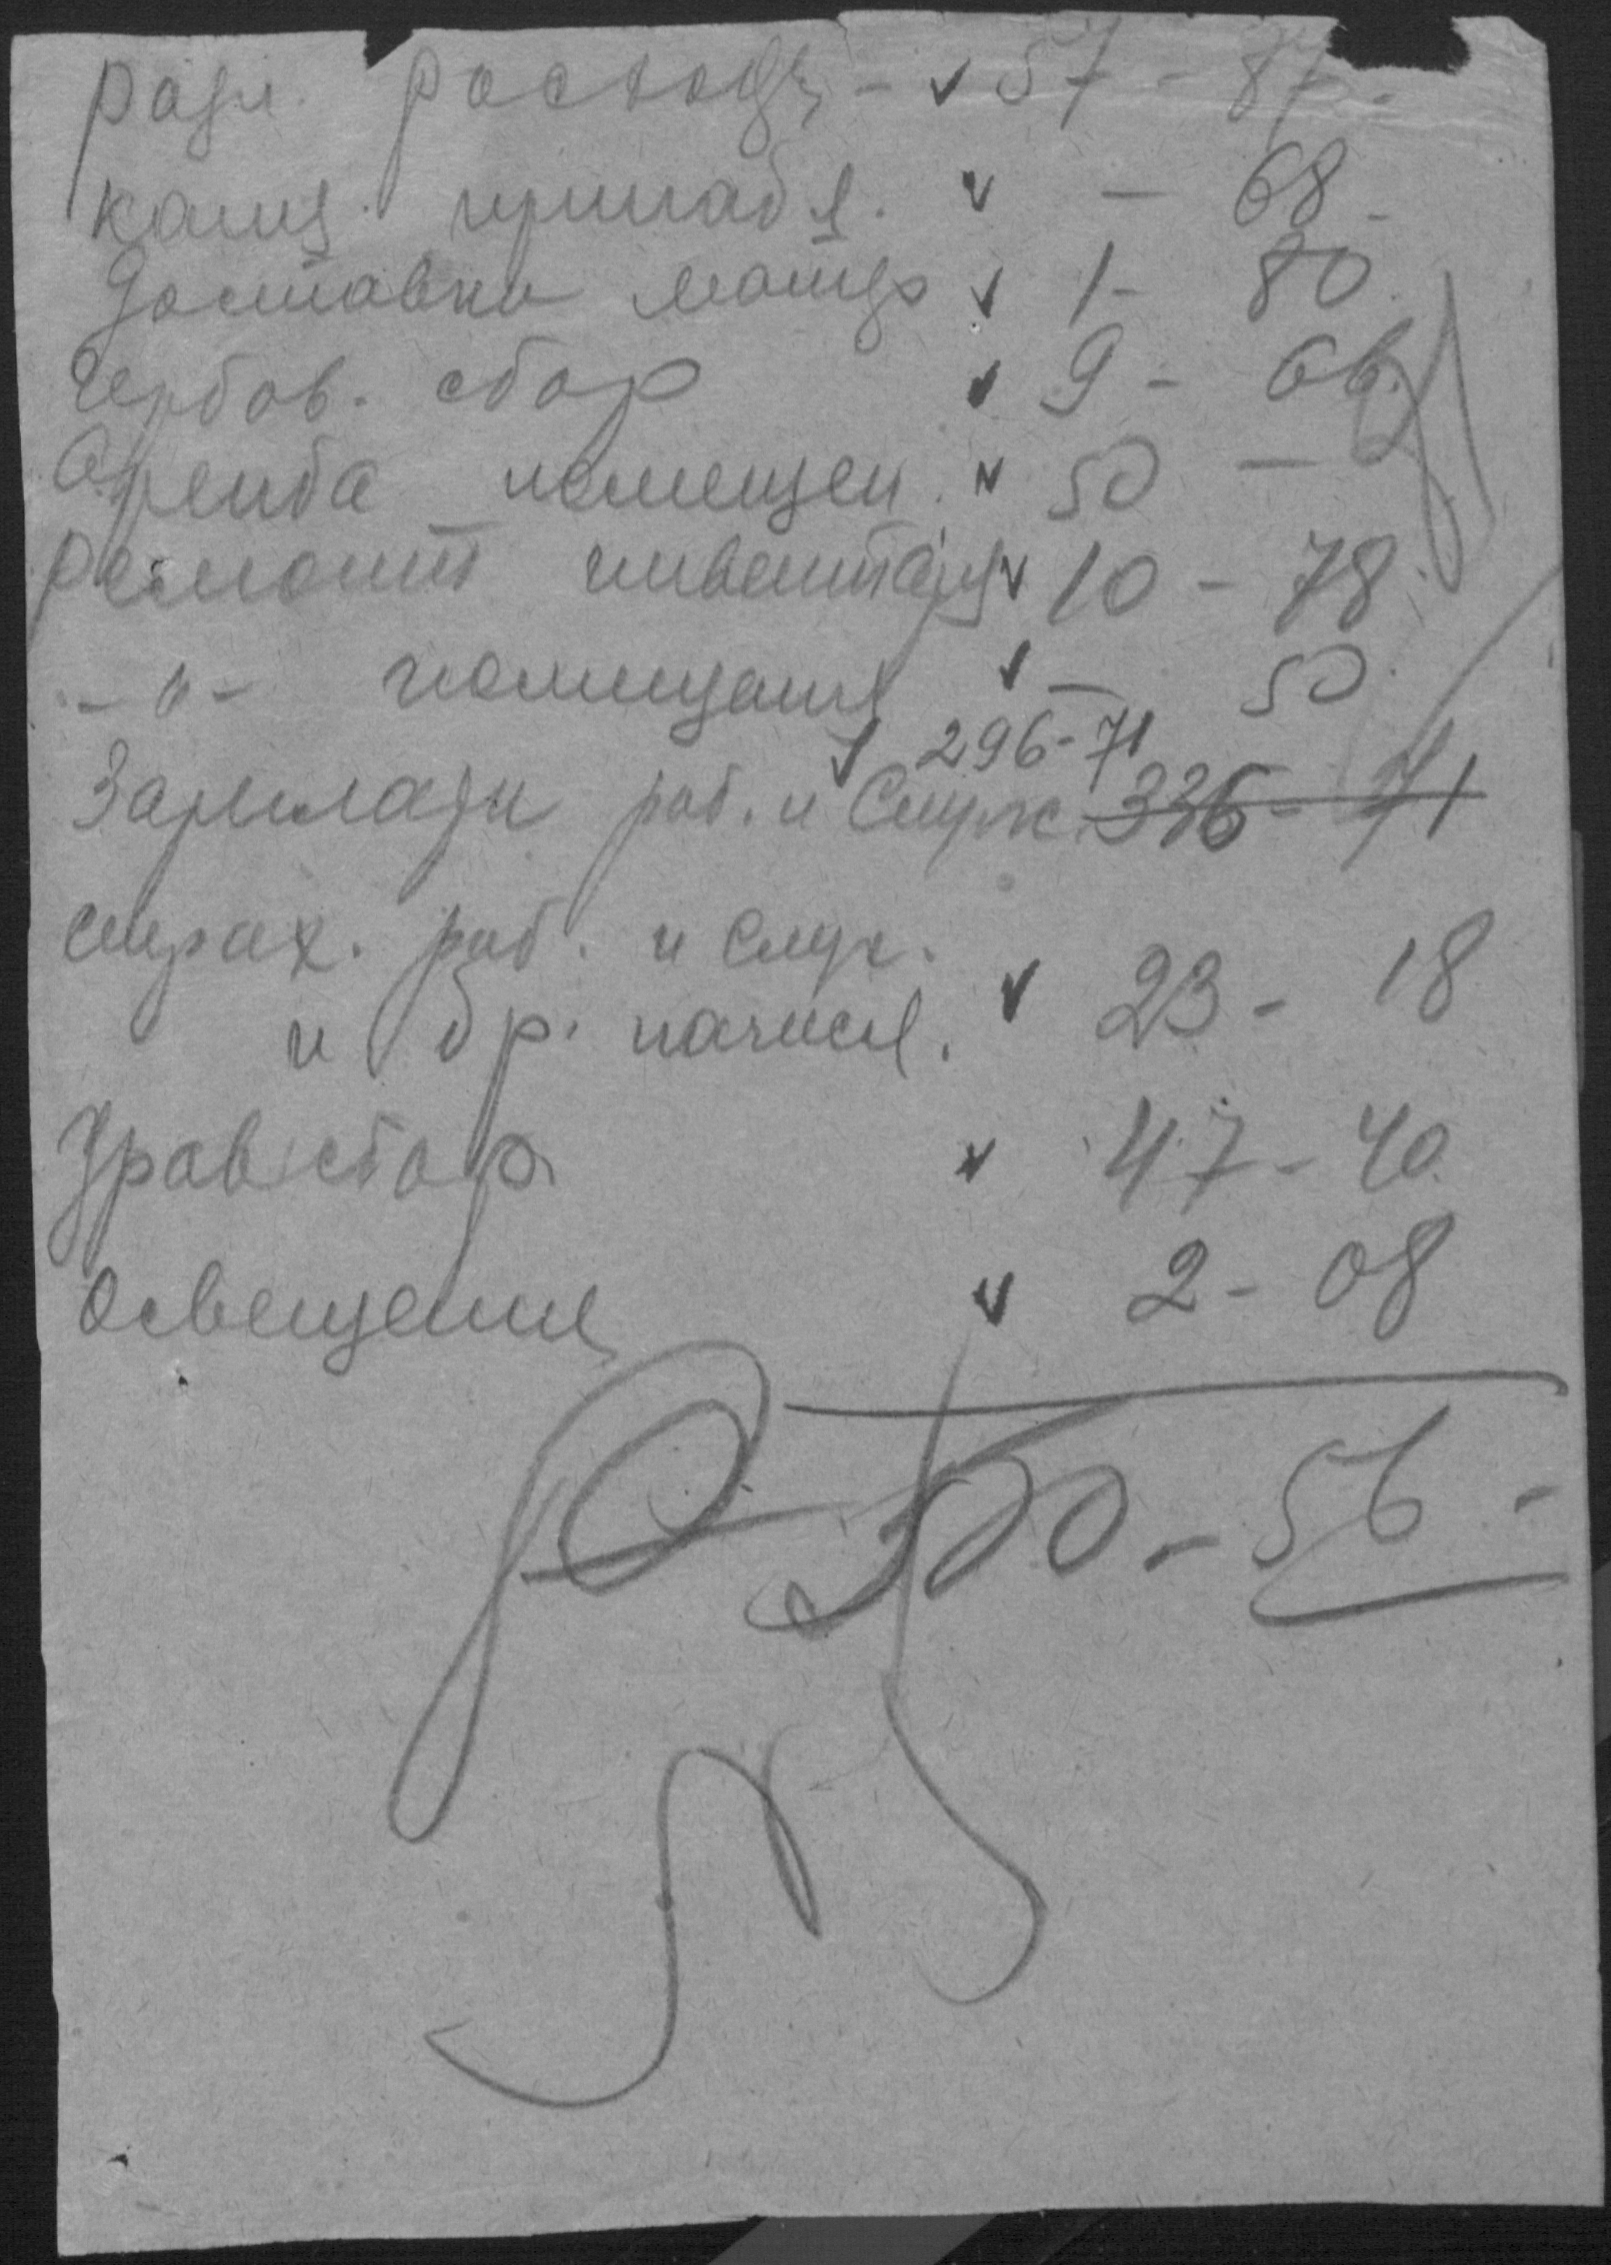 разн. расходы - ✓ 57 - 87 -
канц. принадл. ✓ — 68 -
Доставка матер ✓ 1 - 80
Гербов. сбор ✓ 9 - 66
Аренда помещен. ✓ 50 —
Ремонт инвентаря ✓ 10 - 78
- " - помещения ✓ — 50
✓ 296 - 71
Зарплаты раб. и Служ 336 - 71
страх. раб. и служ.
и др. начисл. ✓ 23 - 18
Уравсбор ✓ 47 - 40
Освещение ✓ 2 - 08
500 - 56 -